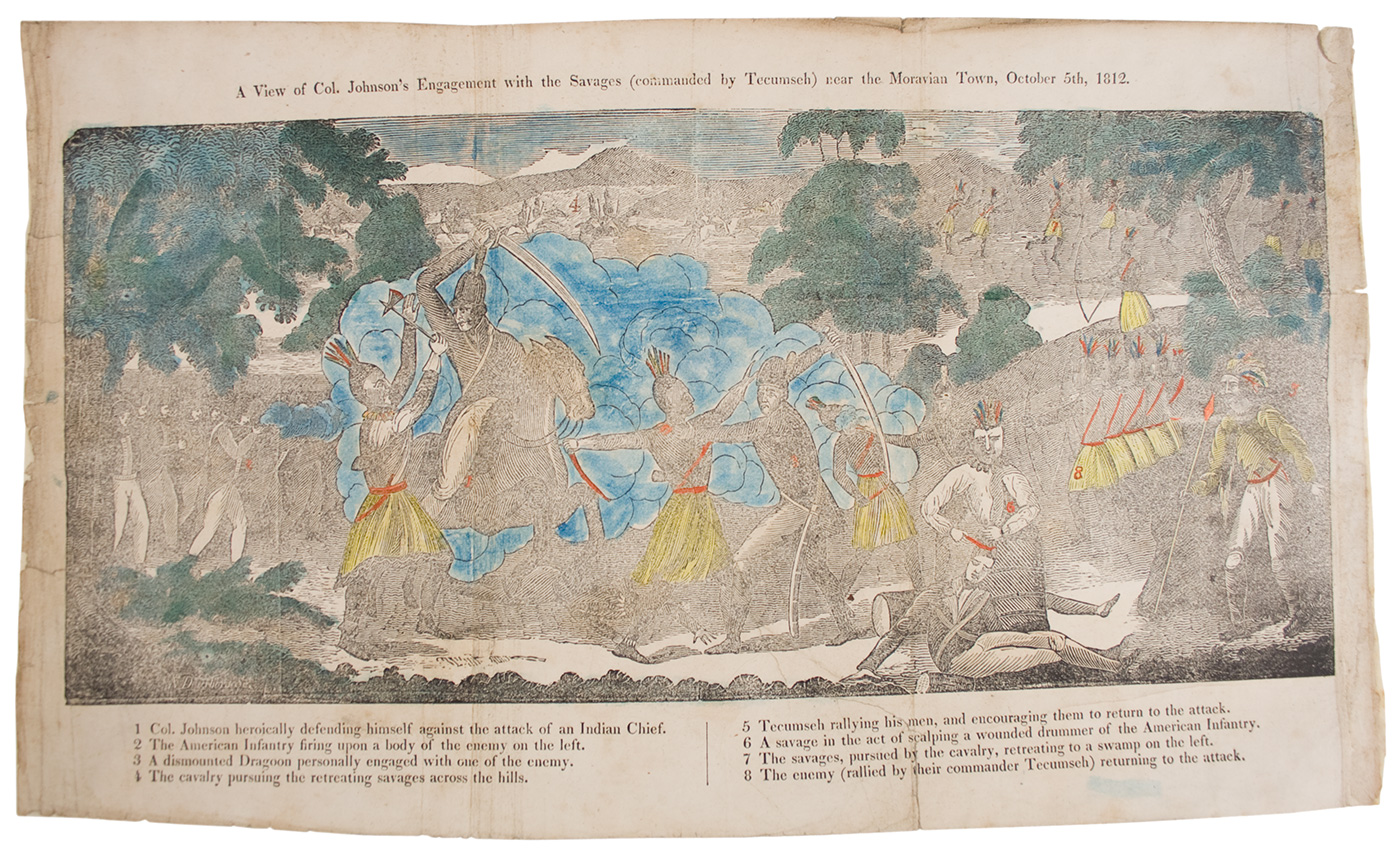 A View of Col. Johnson's Engagement with the Savages (commanded by Tecumseh) near the Moravian Town, October 5th, 1812.
4
7
8
5
2
3
6
1 Col. Johnson heroically defending himself against the attack of an Indian Chief.
2 The American Infantry firing upon a body of the enemy on the left.
3 A dismounted Dragoon personally engaged with one of the enemy.
4 The cavalry pursuing the retreating savages across the hills.
5 Tecumseh rallying his men, and encouraging them to return to the attack.
6 A savage in the act of scalping a wounded drummer of the American Infantry.
7 The savages, pursued by the cavalry, retreating to a swamp on the left.
8 The enemy (rallied by their commander Tecumseh) returning to the attack.